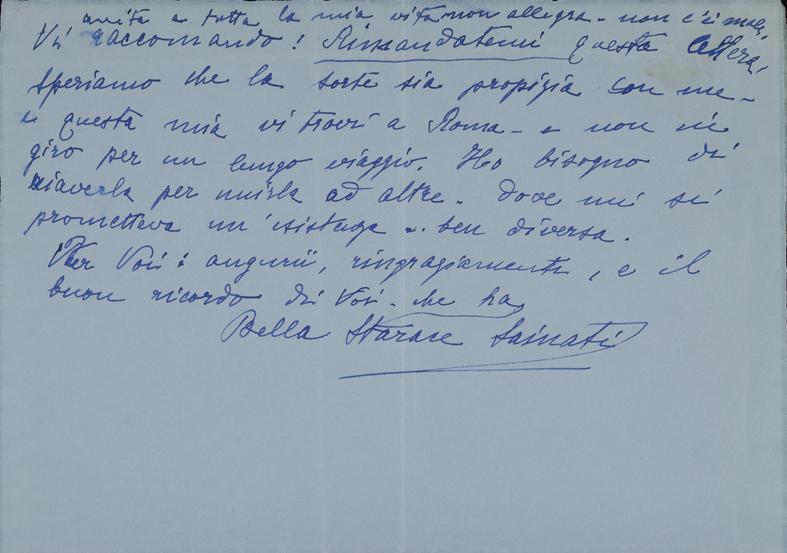 unita a tutta la mia vita non allegra - non c'è male,
Vi raccomando! Rimandatemi questa lettera,
Speriamo che la sorte sia propizia con me -
e questa mia vi trovi a Roma - e non in
giro per un lungo viaggio. Ho bisogno di
riaverla per unirla ad altre - dove mi si
prometteva un'esistenza - ben diversa.
Per Voi: augurii, ringraziamenti, e il
buon ricordo di Voi - che ha
Bella Starace Sainati